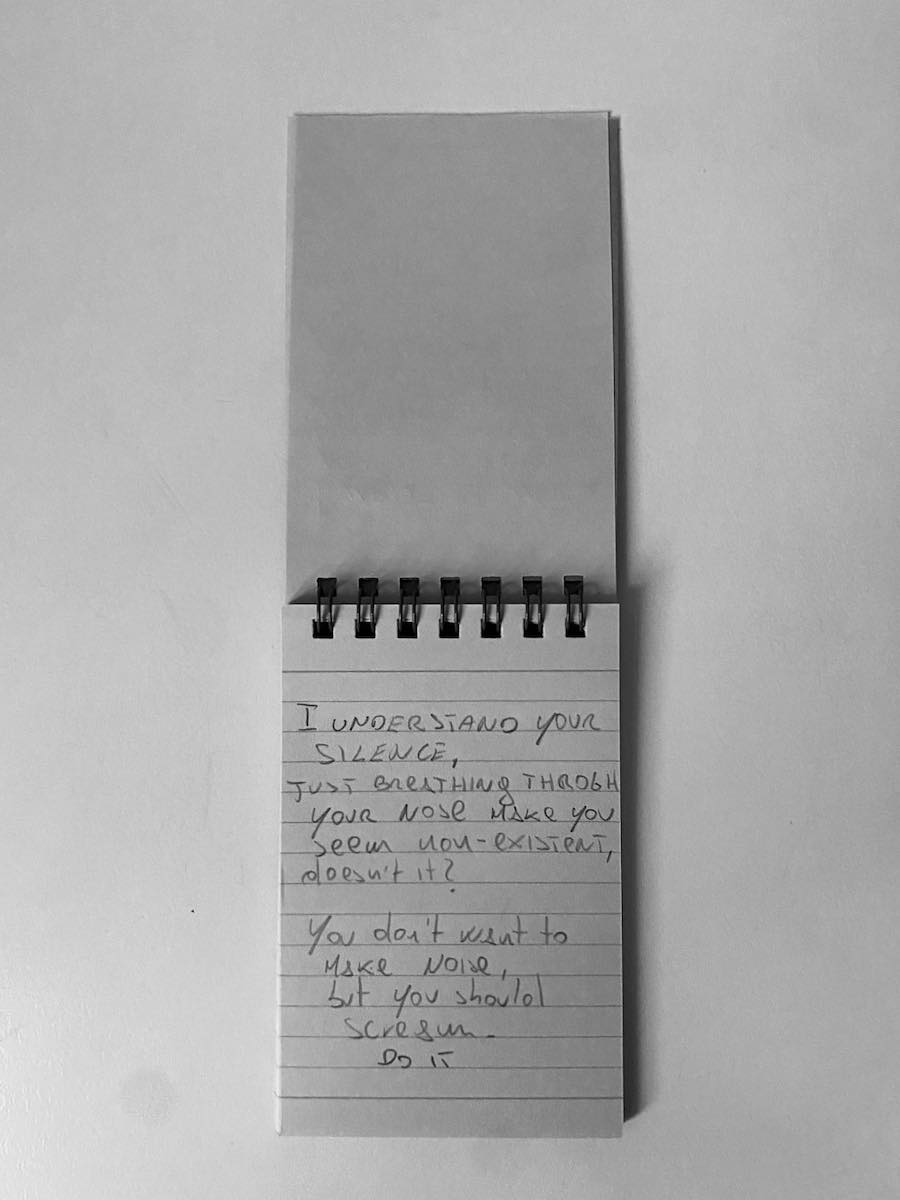 I UNDERSTAND YOUR
SILENCE,
JUST BREATHING THROGH
YOUR NOSE MAKE YOU
seem non-existent,
doesn't it?
You don't want to
MAKE NOISE,
but you should
scream.
DO IT